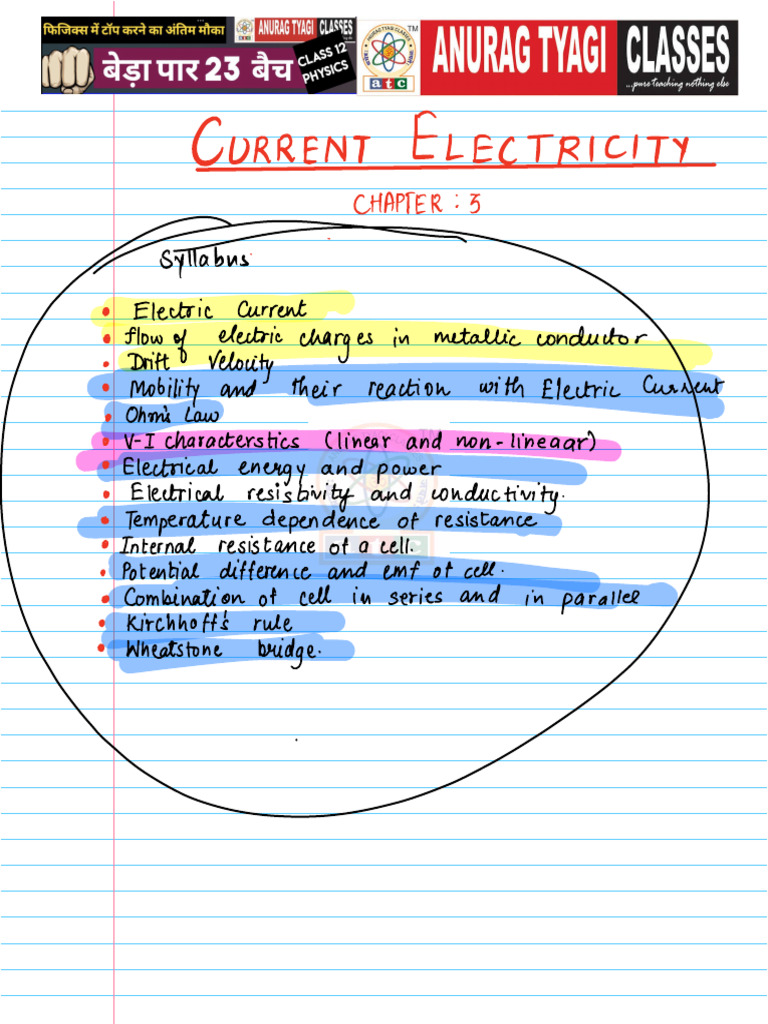 फिजिक्स में टॉप करने का अंतिम मौका
ANURAG TYAGI CLASSES
बेड़ा पार 23 बैच
CLASS 12
PHYSICS
TM
atc
ANURAG TYAGI CLASSES
...pure teaching nothing else
CURRENT ELECTRICITY
CHAPTER : 3
Syllabus
• Electric Current
• flow of electric charges in metallic conductor
• Drift Velocity
• Mobility and their reaction with Electric Current
• Ohm's Law
• V-I characterstics (linear and non-lineaar)
• Electrical energy and power
• Electrical resistivity and conductivity.
• Temperature dependence of resistance
• Internal resistance of a cell.
• Potential difference and emf of cell.
• Combination of cell in series and in parallel
• Kirchhoff's rule
• Wheatstone bridge.